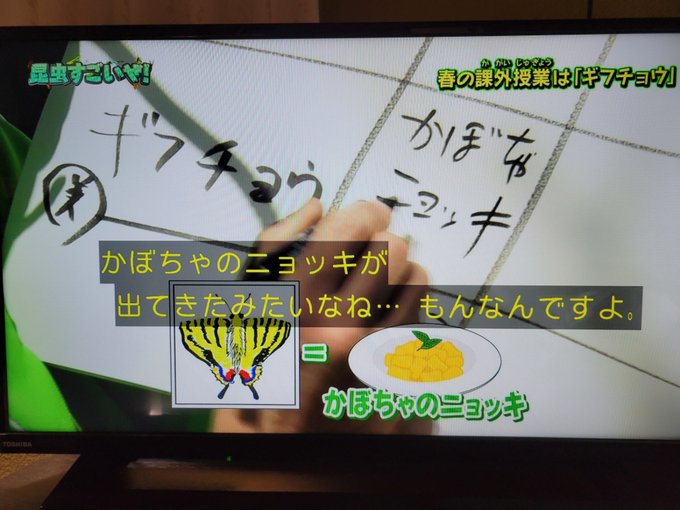 昆虫すごいぜ!
か がい じゅぎょう
春の課外授業は「ギフチョウ」
ギフチョウ
かぼちゃ
ニョッキ
かぼちゃのニョッキが
出てきたみたいなね… もんなんですよ。
=
かぼちゃのニョッキ
TOSHIBA